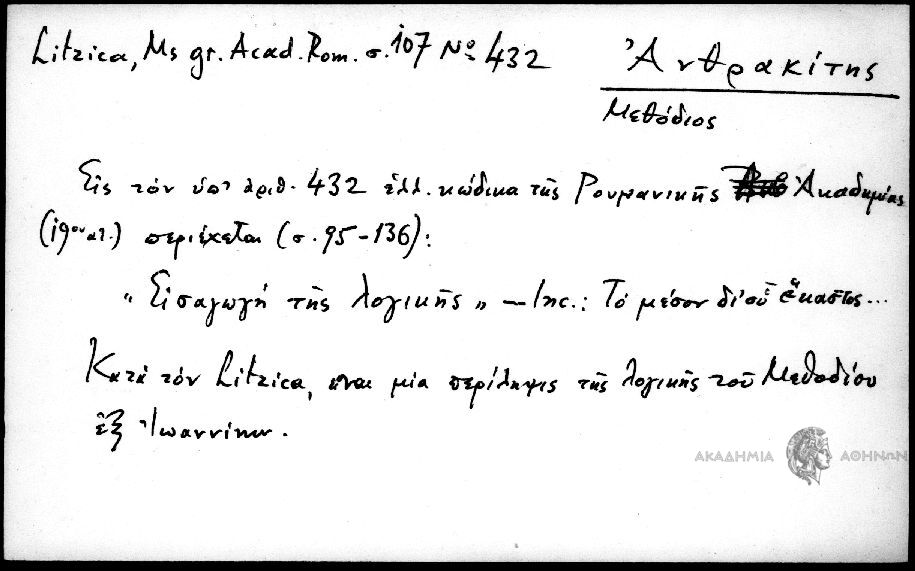 Litzica, Ms gr. Acad. Rom. σ. 107 Nο 432
Ἀνθρακίτης
Μεθόδιος
Εἰς τὸν ὑπ' ἀριθ. 432 ἑλλ. κώδικα τῆς Ρουμανικῆς Ἀκαδημίας
(19ου αἰ.) περιέχεται (σ. 95-136):
"Εἰσαγωγὴ τῆς λογικῆς" – Inc.: Τὸ μέσον δι' οὗ ἕκαστος...
Κατὰ τὸν Litzica, εἶναι μία περίληψις τῆς λογικῆς τοῦ Μεθοδίου
ἐξ Ἰωαννίνων.
ΑΚΑΔΗΜΙΑ ΑΘΗΝΩΝ